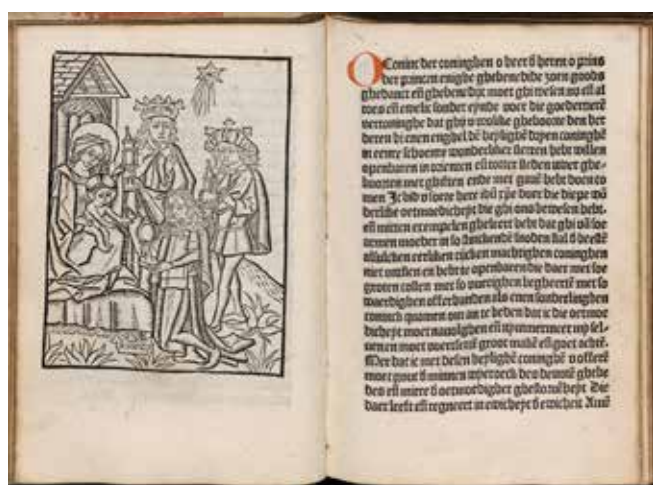 O Coninc der coninghen o heer đ heren o prins
der princen enighe ghebenedide zoen goods
ghedanct eñ ghebenedijt moet ghi wesen nu eñ al
toes eñ ewelic sonder eynde voer die goedertierē
vertoninghe dat ghi v ghehoorte den her
deren bi enen enghel dē heylighē dryen coninghē
in eenre schoenre wonderliker sterren hebt willen
openbaren in orienten eñ totter steden uwer ghe
boorten met ghiften ende met gauē hebt doen co
men Ic bid v lieve here ihū xp̄e doer die diepe wō
derlike oetmoedicheyt die ghi ons bewesen hebt
eñ mitten exempelen gheleert hebt dat ghi vā soe
armen moeder in so stinckendē snoden stal đ beestē
alsulcken eerliken rijcken machtighen coninghen
niet wilsten en hebt te openbaren die daer met soe
groten costen met so vuerighen begheertē met so
waerdighen offerhanden als enen sonderlinghen
coninck quamen om an te beden dat ic die oetmoe
dicheyt moet navolghen eñ nymmermeer mp sel
uenen moet groot makē eñ goet achtē
Mer dat ic met desen heylighē coninghē v offerē
moet gout đ minnen wyeroeck des deuotē ghebe
des eñ mirre đ oetmoedigher ghestoruēheyt Die
daer leeft eñ regneert in ewicheyt đ ewicheit Amē